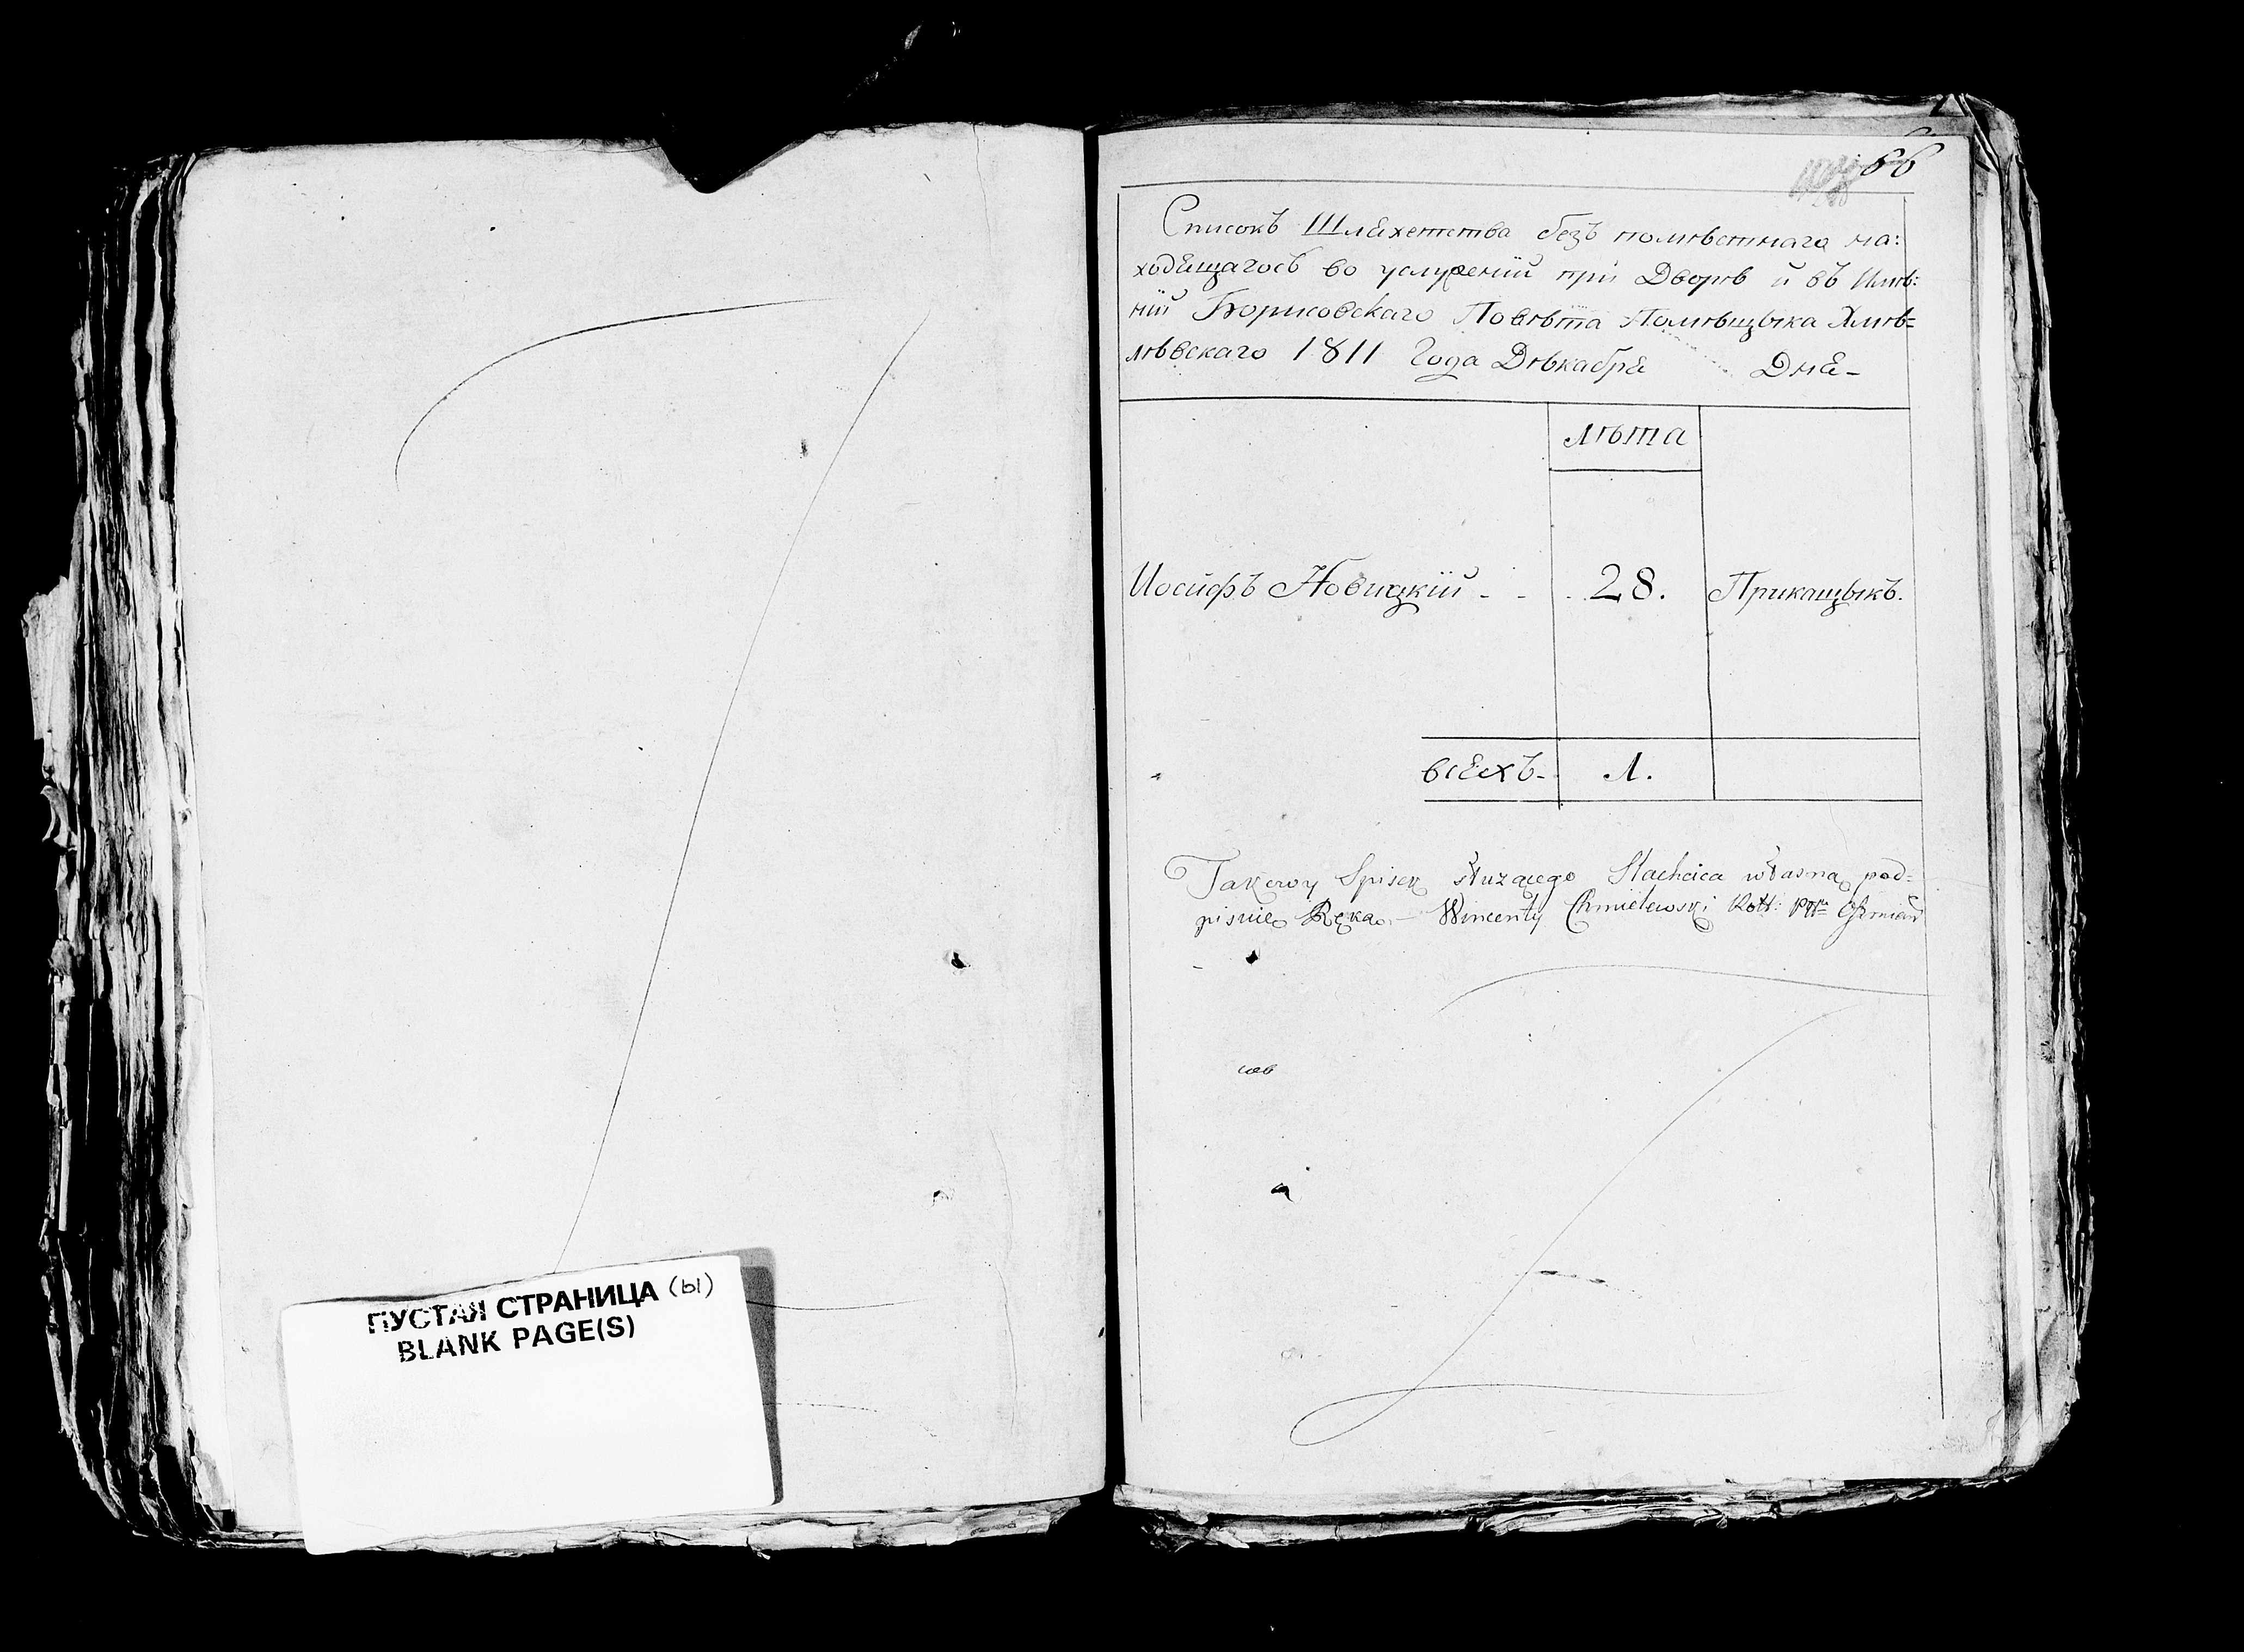 ПУСТАЯ СТРАНИЦА (ы)
BLANK PAGE(S)
66
Списокъ Шляхетства безъ помѣстнаго на:
ходящагось во услуженіи при Дворѣ и въ Имѣ:
ніи Борисовскаго Повѣта Помѣщыка Хмѣ=
лѣвскаго 1811 Года Дѣкабря Дня-
лѣта
Иосифъ Новицкій - - . 28. Прикащыкъ.
всѣхъ. 1.
Takowy Spisek słuzącego Slachcica własną pod=
pisuię Ręką.— Wincenty Chmielewski Rott: Pttu